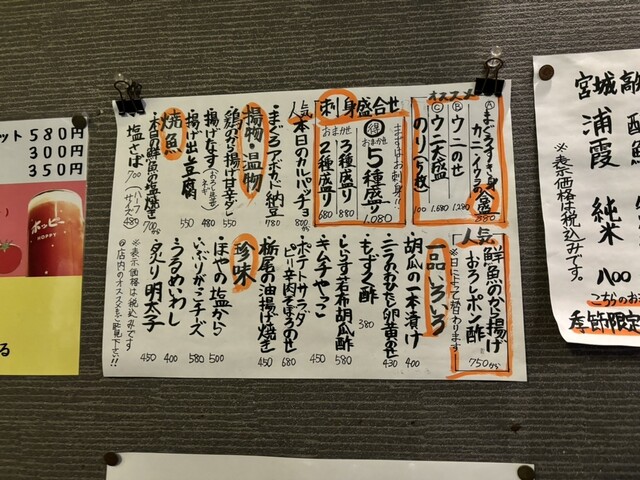 オススメ
Ⓐまぐろすき身
カニ・イクラの
880
Ⓑウニのせ 1.280
Ⓒウニ大盛 1.680
のり(5枚) 100
刺身盛合せ
まずはお刺身!!
おまかせ
5種盛り 1.080
おまかせ
3種盛り 880
2種盛り 680
人気
本日のカルパッチョ 780
まぐろアボカド納豆 780
揚物・温物
鶏のから揚げ甘辛ダレ 550
揚げなす(おろしと長ネギ) 480
揚げ出し豆腐 550
焼魚
本日の鮮魚の塩焼き 700
塩さば 700
ハーフサイズ 480
人気
鮮魚のから揚げ
おろしポン酢
750
※日によって替わります
一品いろいろ
胡瓜の一本漬け 400
ニラのおひたし卵黄のせ 430
もずく酢 380
しらす若布胡瓜酢 580
キムチやっこ 450
ポテトサラダ
ピリ辛肉そぼろのせ 680
栃尾の油揚げ焼き 450
珍味
ほやの塩から 500
いぶりがっこチーズ 580
うるめいわし 400
炙り明太子 450
※表示価格は税込みです
店内のオススメもご覧下さい!!
ット 580円
300円
350円
ホッピー
HOPPY
る
宮城
浦霞
純米
800
※表示価格は税込みです。
こちらのお
季節限定